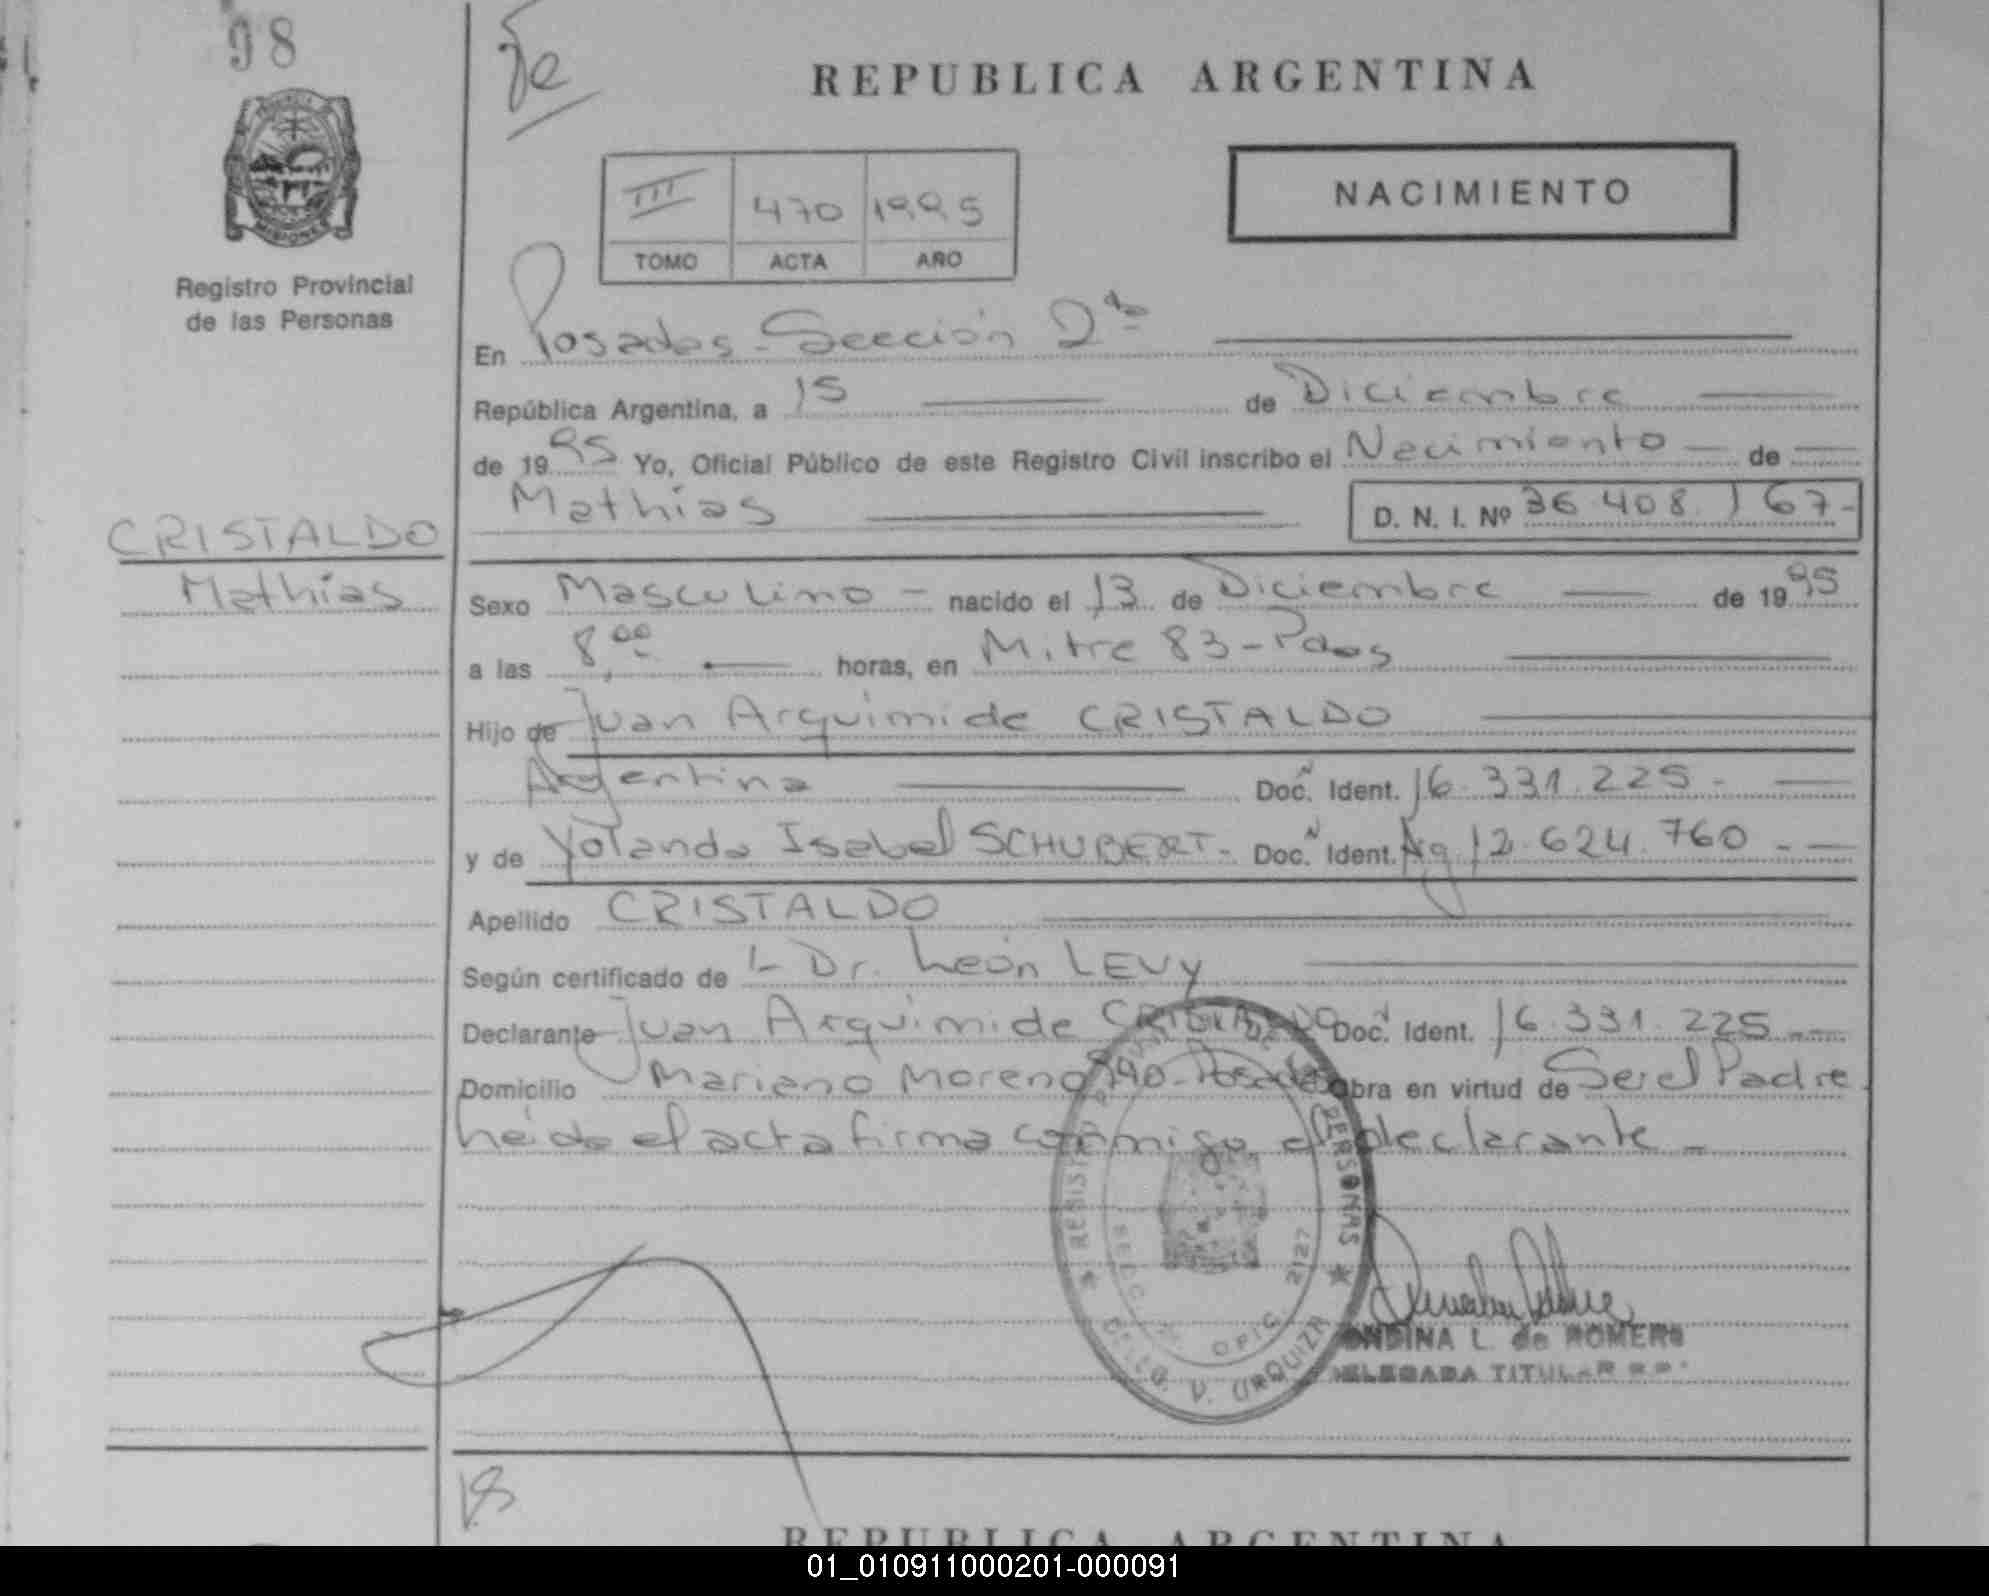 98
REPUBLICA ARGENTINA
III 470 1995
TOMO ACTA AÑO
NACIMIENTO
MISIONES
Registro Provincial
de las Personas
En Posadas - Sección 2da
República Argentina, a 15 de Diciembre
de 1995 Yo, Oficial Público de este Registro Civil inscribo el Nacimiento de
Mathias D. N. I. Nº 36.408.167-
CRISTALDO
Mathias
Sexo Masculino - nacido el 13 de Diciembre de 1995
a las 8,00 horas, en Mitre 83 - Pdas
Hijo de Juan Arquimide CRISTALDO
Argentina Doc. Ident. 16.331.225 -
y de Yolanda Isabel SCHUBERT - Doc. Ident. Arg 12.624.760 -
Apellido CRISTALDO
Según certificado de 1- Dr. León LEVY
Declarante Juan Arquimide CRISTALDO Doc. Ident. 16.331.225
Domicilio Mariano Moreno 940 - Posadas Obra en virtud de Ser el Padre
leida el acta firma conmigo el declarante -
PERSONAS
2127
OFIC.
V. URQUIZA
ONDINA L. de ROMERO
DELEGADA TITULAR
REPUBLICA ARGENTINA
01_010911000201-000091